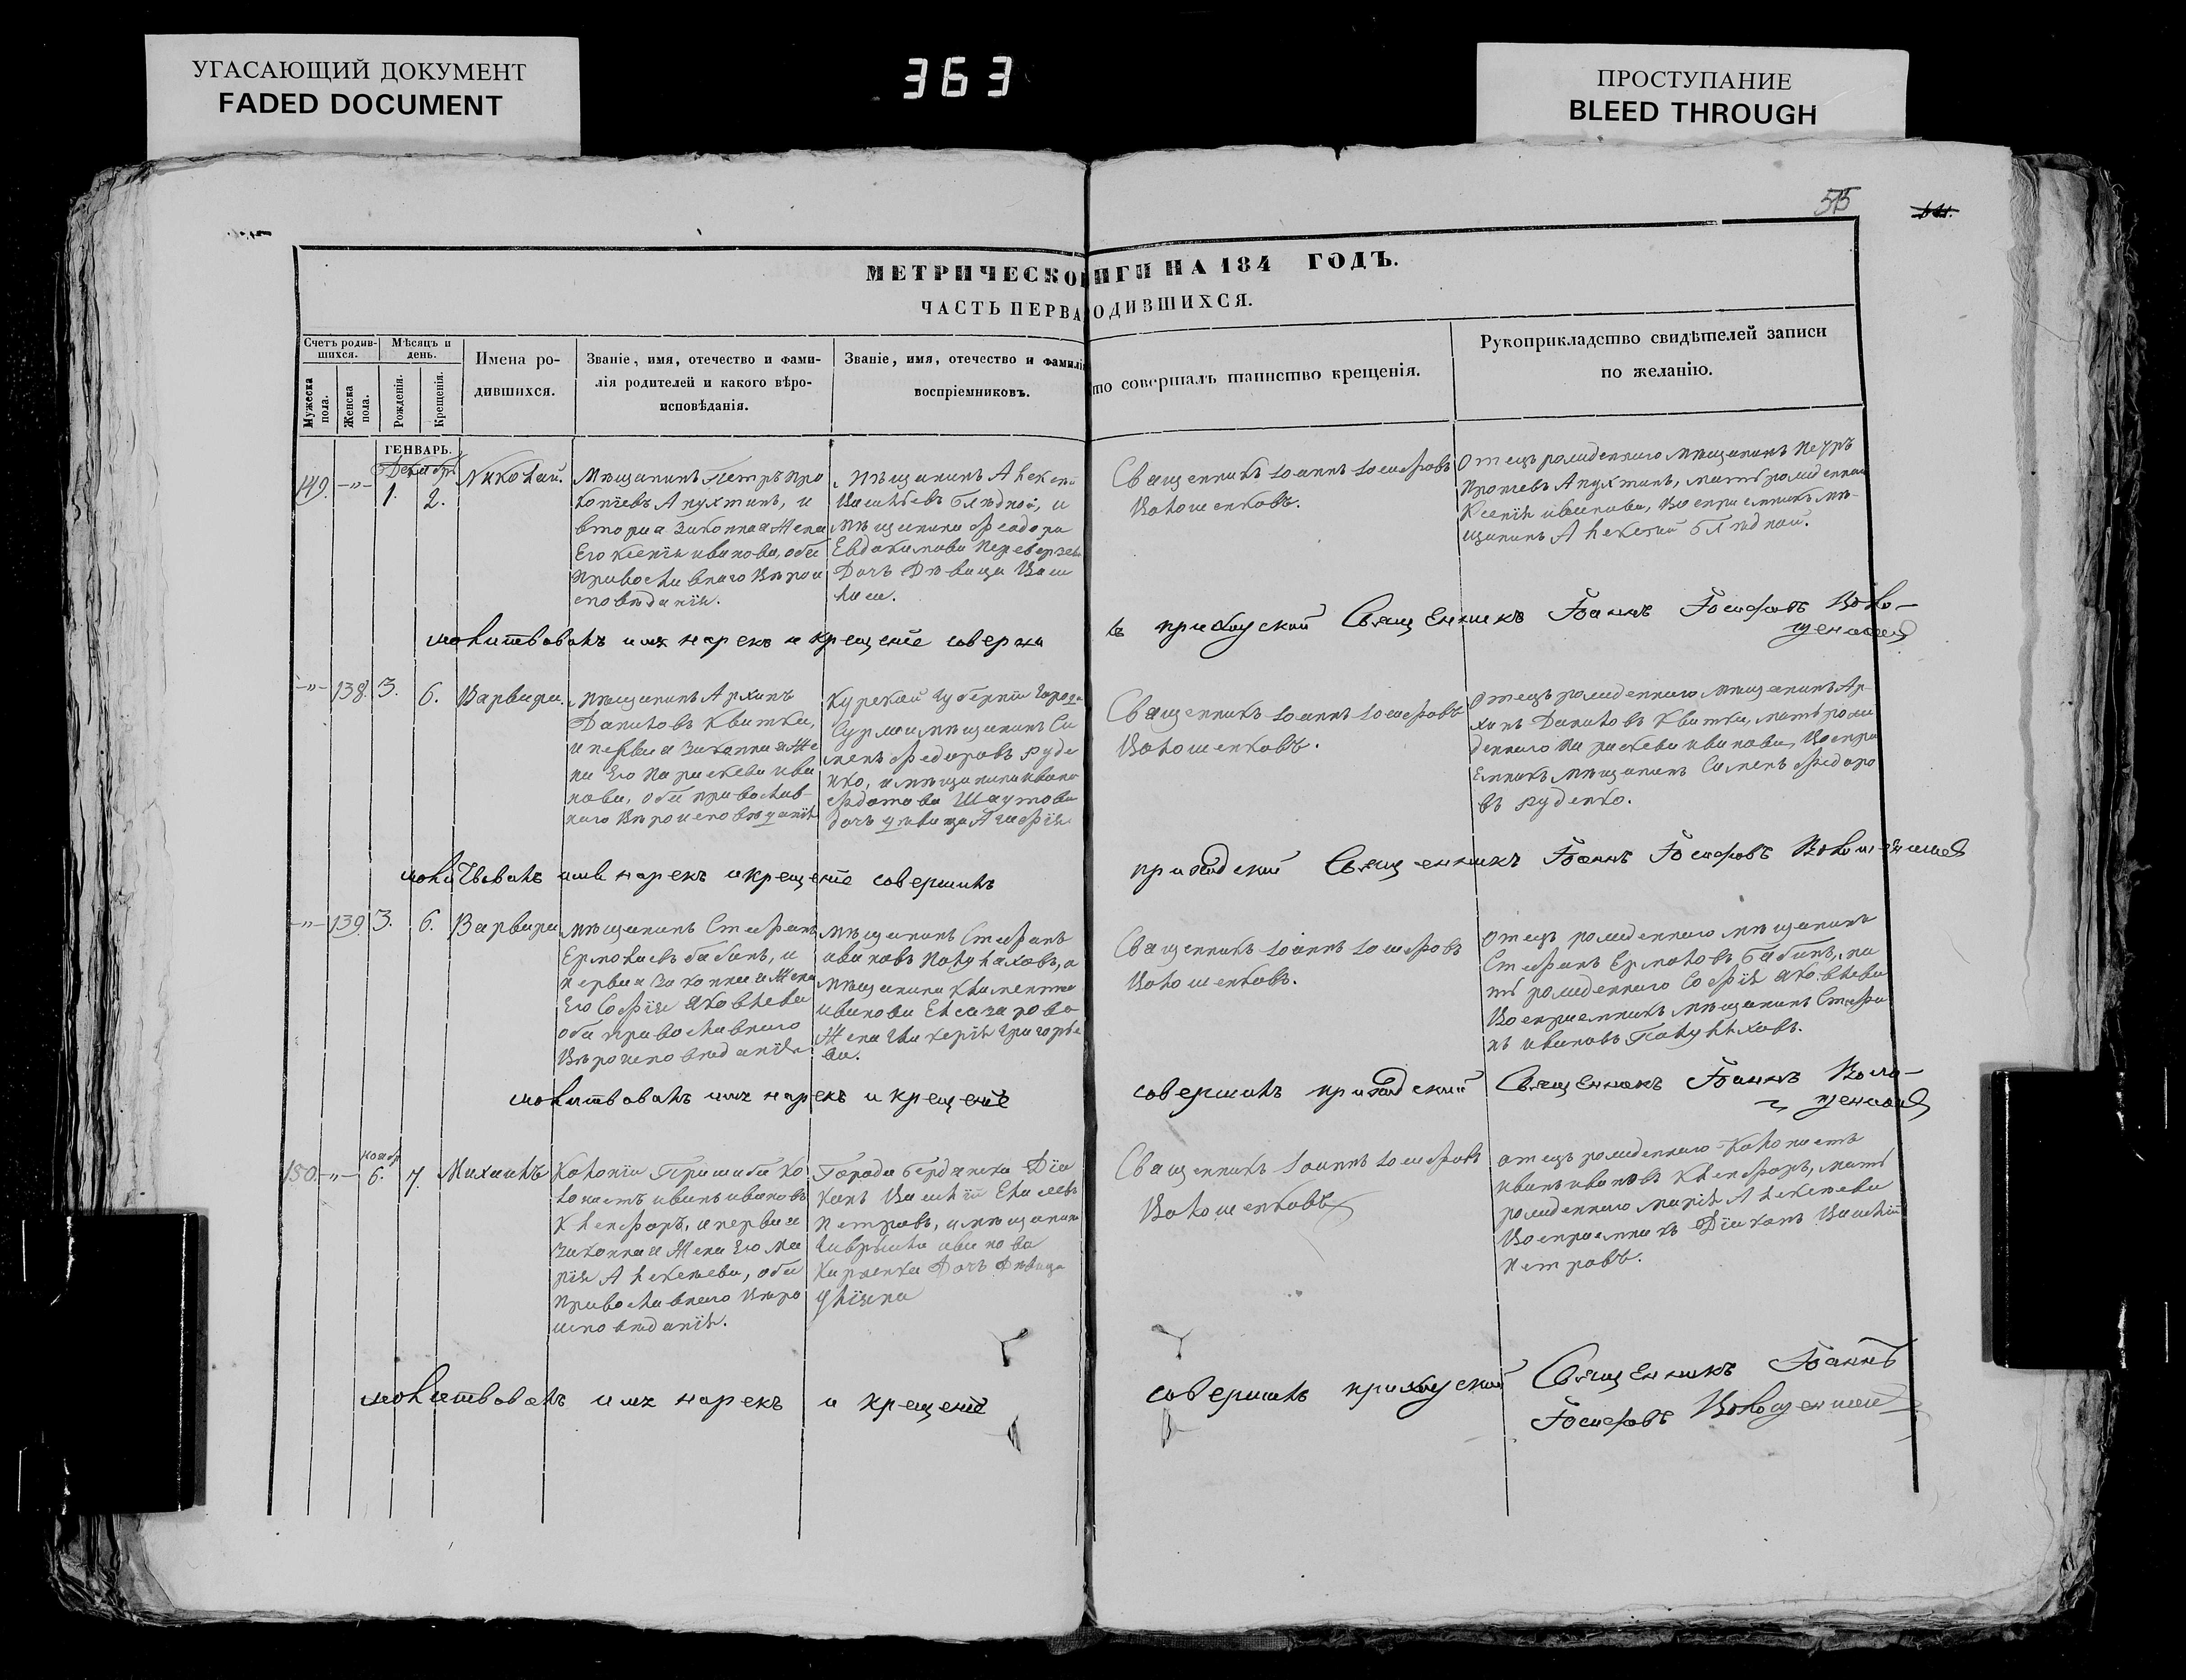 УГАСАЮЩИЙ ДОКУМЕНТ
FADED DOCUMENT
363
ПРОСТУПАНИЕ
BLEED THROUGH
515
МЕТРИЧЕСКО ИГИ НА 184 ГОДЪ.
ЧАСТЬ ПЕРВА ОДИВШИХСЯ.
Счетъ родив-
шихся.
Мужеска
пола.
Женска
пола.
Мѣсяцъ и
день.
Рожденія.
Крещенія.
Имена ро-
дившихся.
Званіе, имя, отечество и фами-
лія родителей и какого вѣро-
исповѣданія.
Званіе, имя, отечество и фамилі
воспріемниковъ.
то совершалъ таинство крещенія.
Рукоприкладство свидѣтелей записи
по желанію.
ГЕНВАРЬ.
Декабр
149.
-"-
1.
2.
Николай.
Мѣщанинъ Петръ Про
копіевъ Апухтинъ, и
вторая законная жена
Его Ксенія иванова, оба
православнаго Вѣрои
сповѣданія.
Мѣщанинъ Алексѣй
Васильевъ Блѣдной, и
мѣщанина Феодора
Евдокимова Переверзева
Дочь Дѣвица Васи
лиса.
Священникъ Іоаннъ Іосифовъ
Волошенковъ.
Отецъ рожденнаго мѣщанинъ Петръ
Апухтинъ, мать рожденнаго
Ксенія иванова, Воспріемникъ мѣ-
щанинъ Алексей Блѣдной.
молитвовалъ имя нарекъ и крещеніе соверши
лъ приходской Священникъ Іоаннъ Іосифовъ Воло-
-"-
138.
3.
6.
Варвара.
мѣщанинъ Архипъ
Даниловъ Квитка,
и первая законная же
на Его Параскева ива
нова, оба православ-
наго Вѣроисповѣданія
Курской губерніи города
мѣщанинъ Си
менъ Федоровъ Руде
нко, и мѣщанина ивана
Федотова Шаутова
дочь дѣвица
Священникъ Іоаннъ Іосифовъ
Волошенковъ.
Отецъ рожденнаго мѣщанинъ Ар-
хипъ Даниловъ Квитка, мать рож
деннаго Параскева иванова, Воспрі
Емникъ мѣщанинъ Сименъ Федоро
въ Руденко.
молитвовалъ имя нарекъ и крещеніе совершилъ
приходской Священникъ Іоаннъ Іосифовъ
-"-
139.
3.
6.
Варвара
мѣщанинъ Стефанъ
Ермолаевъ бабинъ, и
первая законная жена
Его Софія Яковлева
оба православнаго
Вѣроисповѣданія
мѣщанинъ Стефанъ
ивановъ Полуляховъ, и
мѣщанина Климентія
иванова Елсазарова
жена Гликерія Григорье
ва.
Священникъ Іоаннъ Іосифовъ
Волошенковъ.
Отецъ рожденнаго мѣщанинъ
Стефанъ Ермоловъ Бабинъ, ма
ть рожденнаго Софія Яковлева
Воспріемникъ мѣщанинъ Стефа
нъ ивановъ Полуляховъ.
молитвовалъ имя нарекъ и крещеніе
совершилъ приходской Священникъ Іоаннъ Воло-
Ноябр
150.
-"-
6.
7.
Михаилъ
Колоніи Пришиба ко
лонистъ иванъ ивановъ
Клепфоръ, и первая
законная жена Его Ма
рія Алексеева, оба
православнаго Вѣро
исповѣданія.
Города бердянска Діа
конъ Василій Елисеевъ
Петровъ, и мѣщанина
Гаврыила иванова
Дочь Дѣвица
Уліяна
Священникъ Іоаннъ Іосифовъ
Волошенковъ
отецъ рожденнаго Колонистъ
иванъ ивановъ Клепфоръ, мать
рожденнаго марія Алексеева
Воспріемникъ Діаконъ Василій
Петровъ.
молитвовалъ имя нарекъ и крещеніе
совершилъ приходской Священникъ Іоаннъ
Іосифовъ